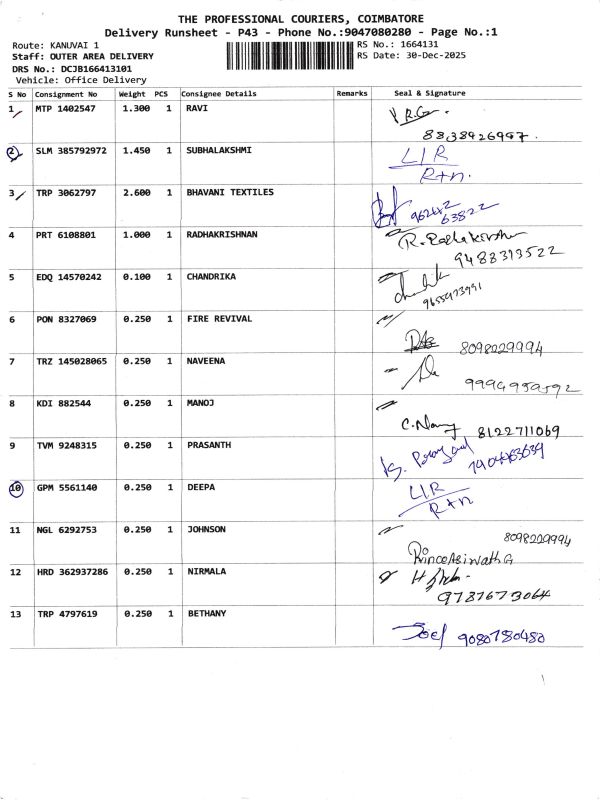 THE PROFESSIONAL COURIERS, COIMBATORE
Delivery Runsheet - P43 - Phone No.:9047080280 - Page No.:1
Route: KANUVAI 1 RS No.: 1664131
Staff: OUTER AREA DELIVERY RS Date: 30-Dec-2025
DRS No.: DCJB166413101
Vehicle: Office Delivery
S No Consignment No Weight PCS Consignee Details Remarks Seal & Signature
1 MTP 1402547 1.300 1 RAVI
8838926997.
2 SLM 385792972 1.450 1 SUBHALAKSHMI L/R
R+n.
3 TRP 3062797 2.600 1 BHAVANI TEXTILES 962642
63822
4 PRT 6108801 1.000 1 RADHAKRISHNAN R. Radhakrishnan
9488313522
5 EDQ 14570242 0.100 1 CHANDRIKA
9655973991
6 PON 8327069 0.250 1 FIRE REVIVAL
8098229994
7 TRZ 145028065 0.250 1 NAVEENA
9994959592
8 KDI 882544 0.250 1 MANOJ
8122711069
9 TVM 9248315 0.250 1 PRASANTH
7904463639
10 GPM 5561140 0.250 1 DEEPA L/R
R+n
11 NGL 6292753 0.250 1 JOHNSON 8098229994
12 HRD 362937286 0.250 1 NIRMALA
9787673064
13 TRP 4797619 0.250 1 BETHANY
Joel 9080780480